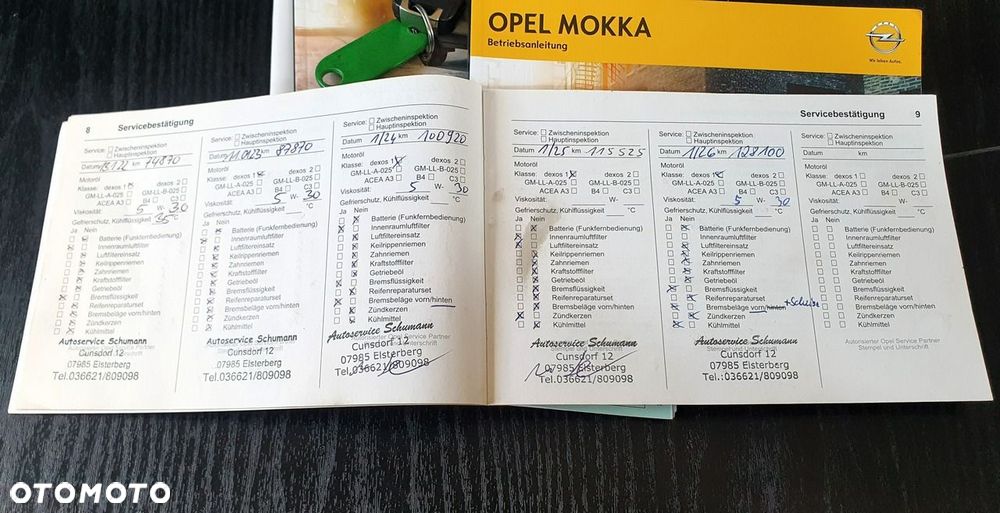 OPEL MOKKA
Betriebsanleitung
Wir leben Autos.
8 Servicebestätigung
Service: Zwischeninspektion
Hauptinspektion
Datum km 74870
Motoröl
Klasse: dexos 1 dexos 2
GM-LL-A-025 GM-LL-B-025
ACEA A3 B4 C3
Viskosität: 5 W- 30
Gefrierschutz, Kühlflüssigkeit 35 °C
Ja Nein
Batterie (Funkfernbedienung)
Innenraumluftfilter
Luftfiltereinsatz
Keilrippenriemen
Zahnriemen
Kraftstofffilter
Getriebeöl
Bremsflüssigkeit
Reifenreparaturset
Bremsbeläge vorn/hinten
Zündkerzen
Kühlmittel
Autoservice Schumann
Cunsdorf 12
07985 Elsterberg
Tel.036621/809098
Service: Zwischeninspektion
Hauptinspektion
Datum km 87870
Motoröl
Klasse: dexos 1 dexos 2
GM-LL-A-025 GM-LL-B-025
ACEA A3 B4 C3
Viskosität: 5 W- 30
Gefrierschutz, Kühlflüssigkeit °C
Ja Nein
Batterie (Funkfernbedienung)
Innenraumluftfilter
Luftfiltereinsatz
Keilrippenriemen
Zahnriemen
Kraftstofffilter
Getriebeöl
Bremsflüssigkeit
Reifenreparaturset
Bremsbeläge vorn/hinten
Zündkerzen
Kühlmittel
Autoservice Schumann
Cunsdorf 12
07985 Elsterberg
Tel.036621/809098
Service: Zwischeninspektion
Hauptinspektion
Datum 1/24 km 100920
Motoröl
Klasse: dexos 1 dexos 2
GM-LL-A-025 GM-LL-B-025
ACEA A3 B4 C3
Viskosität: 5 W- 30
Gefrierschutz, Kühlflüssigkeit °C
Ja Nein
Batterie (Funkfernbedienung)
Innenraumluftfilter
Luftfiltereinsatz
Keilrippenriemen
Zahnriemen
Kraftstofffilter
Getriebeöl
Bremsflüssigkeit
Reifenreparaturset
Bremsbeläge vorn/hinten
Zündkerzen
Kühlmittel
Autoservice Schumann
Cunsdorf 12
07985 Elsterberg
Tel.036621/809098
Servicebestätigung 9
Service: Zwischeninspektion
Hauptinspektion
Datum 1/25 km 115525
Motoröl
Klasse: dexos 1 dexos 2
GM-LL-A-025 GM-LL-B-025
ACEA A3 B4 C3
Viskosität: W-
Gefrierschutz, Kühlflüssigkeit °C
Ja Nein
Batterie (Funkfernbedienung)
Innenraumluftfilter
Luftfiltereinsatz
Keilrippenriemen
Zahnriemen
Kraftstofffilter
Getriebeöl
Bremsflüssigkeit
Reifenreparaturset
Bremsbeläge vorn/hinten
Zündkerzen
Kühlmittel
Autoservice Schumann
Cunsdorf 12
07985 Elsterberg
Tel.036621/809098
Service: Zwischeninspektion
Hauptinspektion
Datum 1/26 km 128100
Motoröl
Klasse: dexos 1 dexos 2
GM-LL-A-025 GM-LL-B-025
ACEA A3 B4 C3
Viskosität: 5 W- 30
Gefrierschutz, Kühlflüssigkeit °C
Ja Nein
Batterie (Funkfernbedienung)
Innenraumluftfilter
Luftfiltereinsatz
Keilrippenriemen
Zahnriemen
Kraftstofffilter
Getriebeöl
Bremsflüssigkeit
Reifenreparaturset
Bremsbeläge vorn/hinten
Zündkerzen
Kühlmittel
Autoservice Schumann
Cunsdorf 12
07985 Elsterberg
Tel.:036621/809098
Service: Zwischeninspektion
Hauptinspektion
Datum km
Motoröl
Klasse: dexos 1 dexos 2
GM-LL-A-025 GM-LL-B-025
ACEA A3 B4 C3
Viskosität: W-
Gefrierschutz, Kühlflüssigkeit °C
Ja Nein
Batterie (Funkfernbedienung)
Innenraumluftfilter
Luftfiltereinsatz
Keilrippenriemen
Zahnriemen
Kraftstofffilter
Getriebeöl
Bremsflüssigkeit
Reifenreparaturset
Bremsbeläge vorn/hinten
Zündkerzen
Kühlmittel
Autorisierter Opel Service Partner
Stempel und Unterschrift
OTOMOTO